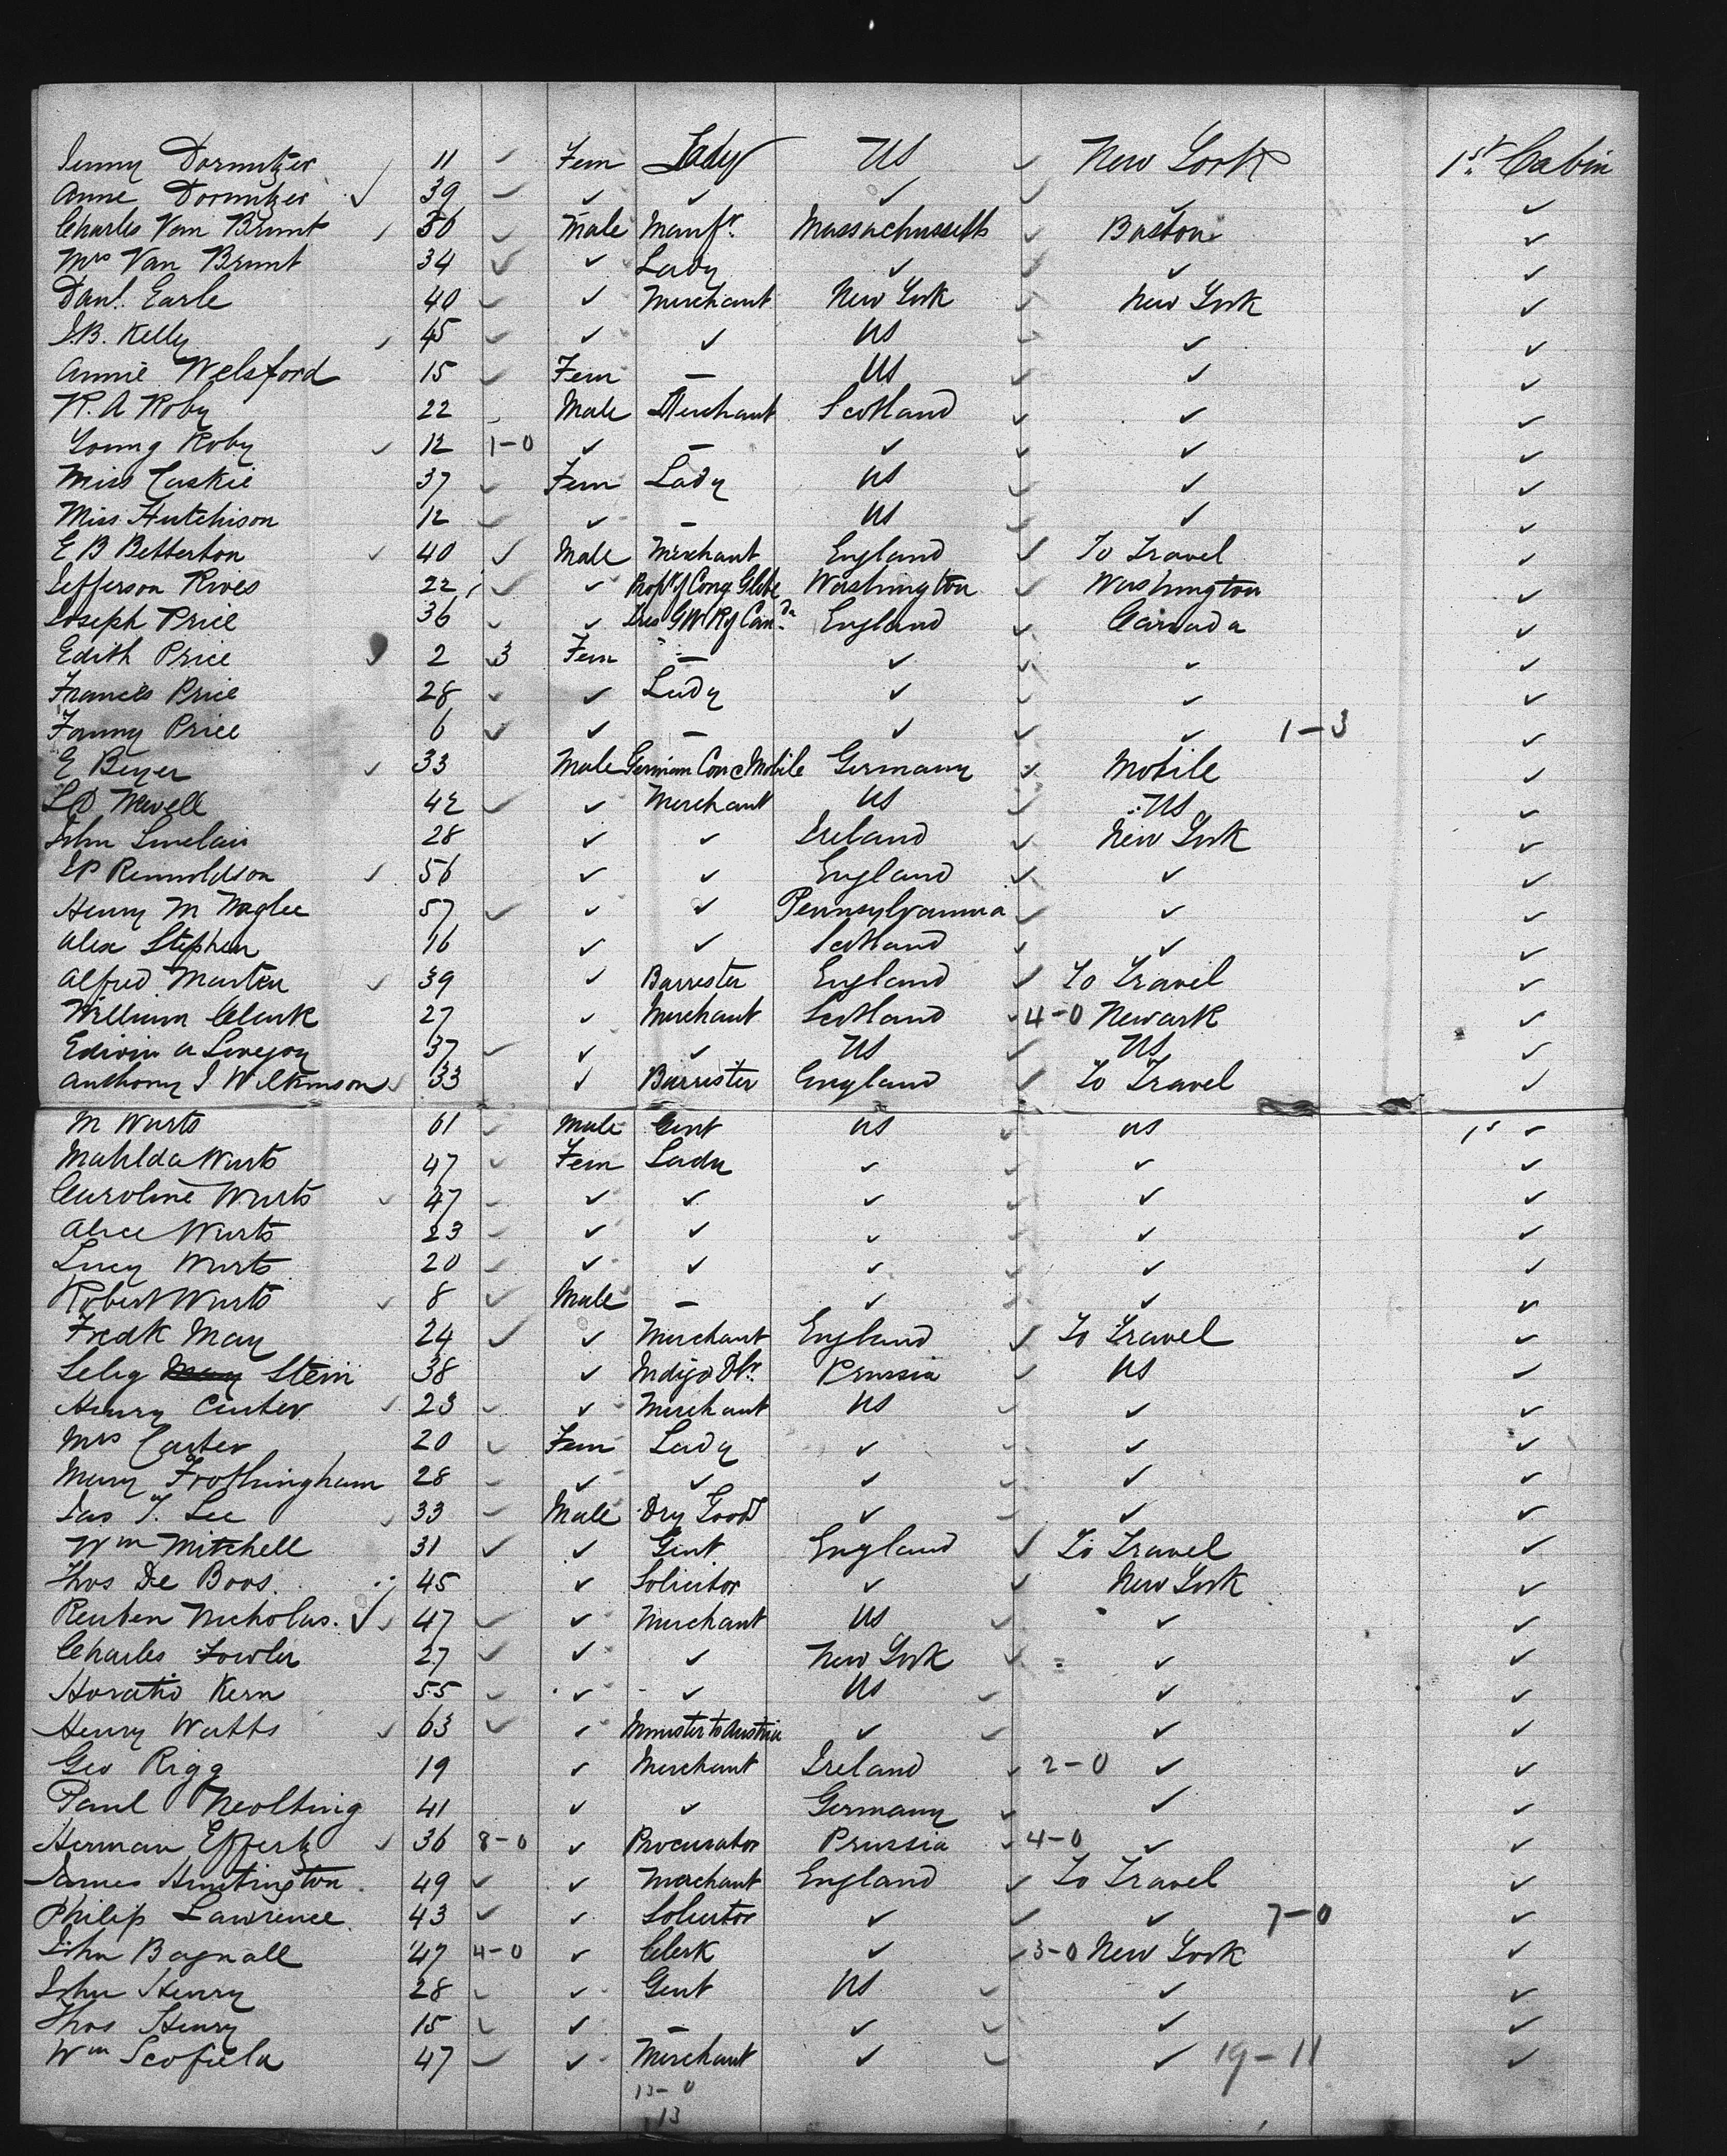 Jenny Dormitzer 11 ✓ Fem Lady US ✓ New York 1st Cabin
Anne Dormitzer ✓ 39 ✓ ✓ ✓ ✓ ✓ ✓ ✓
Charles Van Brunt ✓ 36 ✓ Male Manfr. Massachussetts ✓ Boston ✓
Mrs Van Brunt 34 ✓ ✓ Lady ✓ ✓ ✓ ✓
Danl. Earle 40 ✓ ✓ Merchant New York ✓ New York ✓
J.B. Kelly ✓ 45 ✓ ✓ ✓ US ✓ ✓ ✓
Annie Welsford 15 ✓ Fem — US ✓ ✓ ✓
R. A Roby 22 Male Merchant Scotland ✓ ✓ ✓
Young Roby ✓ 12 1-0 ✓ — ✓ ✓ ✓ ✓
Miss Caskie 37 ✓ Fem Lady US ✓ ✓ ✓
Miss Hutchison 12 ✓ ✓ — US ✓ ✓ ✓
E B Betterton ✓ 40 ✓ Male Merchant England ✓ To Travel ✓
Jefferson Rives 22 ✓ ✓ Propr of Cong Globe Washington ✓ Washington ✓
Joseph Price 36 ✓ ✓ GW Ry Can da England ✓ Canada ✓
Edith Price ✓ 2 3 Fem — ✓ ✓ ✓ ✓
Frances Price 28 ✓ ✓ Lady ✓ ✓ ✓ ✓
Fanny Price 6 ✓ ✓ — ✓ ✓ ✓ 1-3 ✓
E Beyer ✓ 33 Male German Con Mobile Germany ✓ Mobile ✓
L D Newell 42 ✓ ✓ Merchant US ✓ US ✓
John Sinclair 28 ✓ ✓ Ireland ✓ New York ✓
J P Rennoldson ✓ 56 ✓ ✓ England ✓ ✓ ✓
Henry M Naglee 57 ✓ ✓ ✓ Pennsylvannia ✓ ✓ ✓
Alex Stephen 16 ✓ ✓ Scotland ✓ ✓ ✓
Alfred Marten ✓ 39 ✓ Barrester England ✓ To Travel ✓
William Clark 27 ✓ Merchant Scotland ✓ 4-0 Newark ✓
Edwin A Lovejoy 37 ✓ ✓ ✓ US ✓ US ✓
Anthony J Wilkinson ✓ 33 ✓ Barrister England ✓ To Travel ✓
M Wurts 61 ✓ Male Gent US ✓ US 1s ✓
Matilda Wurts 47 ✓ Fem Lady ✓ ✓ ✓ ✓
Caroline Wurts ✓ 47 ✓ ✓ ✓ ✓ ✓ ✓ ✓
Alice Wurts 23 ✓ ✓ ✓ ✓ ✓ ✓ ✓
Lucy Wurts 20 ✓ ✓ ✓ ✓ ✓ ✓ ✓
Robert Wurts ✓ 8 ✓ Male — ✓ ✓ ✓ ✓
Fredk May 24 ✓ ✓ Merchant England ✓ To Travel ✓
Selig May Stein 38 ✓ Indigo Dlr. Prussia ✓ US ✓
Henry Carter ✓ 23 ✓ ✓ Merchant US ✓ ✓ ✓
Mrs Carter 20 ✓ Fem Lady ✓ ✓ ✓ ✓
Mary Frothingham 28 ✓ ✓ ✓ ✓ ✓ ✓ ✓
Jas T. Lee ✓ 33 ✓ Male Dry Goods ✓ ✓ ✓ ✓
Wm Mitchell 31 ✓ ✓ Gent England ✓ To Travel ✓
Thos De Boos. 45 ✓ Solicitor ✓ ✓ New York ✓
Reuben Nicholas. ✓ 47 ✓ ✓ Merchant US ✓ ✓ ✓
Charles Fowler 27 ✓ ✓ ✓ New York ✓ ✓ ✓
Horatio Kern 55 ✓ ✓ ✓ US ✓ ✓ ✓
Henry Watts ✓ 63 ✓ ✓ Minister to Austria ✓ ✓ ✓ ✓
Geo Rigg 19 ✓ Merchant Ireland ✓ 2-0 ✓ ✓
Paul Neolting 41 ✓ ✓ Germany ✓ ✓ ✓
Herman Effertz ✓ 36 8-0 ✓ Procurator Prussia ✓ 4-0 ✓ ✓
James Huntington. 49 ✓ ✓ Merchant England ✓ To Travel ✓
Philip Lawrence. 43 ✓ ✓ Solicitor ✓ ✓ ✓ 7-0 ✓
John Bagnall 47 4-0 ✓ Clerk ✓ ✓ 3-0 New York ✓
John Henry 28 ✓ ✓ Gent US ✓ ✓ ✓
Thos Henry 15 ✓ ✓ — ✓ ✓ ✓ ✓
Wm Scofield 47 ✓ ✓ Merchant ✓ ✓ ✓ 19-11 ✓
13-0
13